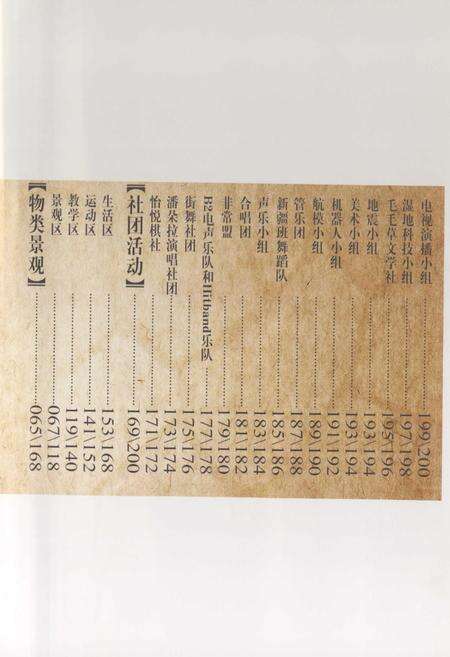 【物类景观】……065\168
景观区……067\118
教学区……119\140
运动区……141\152
生活区……153\168
【社团活动】……169/200
怡悦棋社……171\172
潘朵拉演唱社团……173\174
街舞社团……175\176
H2电声乐队和Hitband乐队……177\178
非常盟……179\180
合唱团……181\182
声乐小组……183\184
新疆班舞蹈队……185\186
管乐团……187\188
航模小组……189\190
机器人小组……191\192
美术小组……193\194
地震小组……193\194
毛毛草文学社……195\196
湿地科技小组……197\198
电视演播小组……199\200